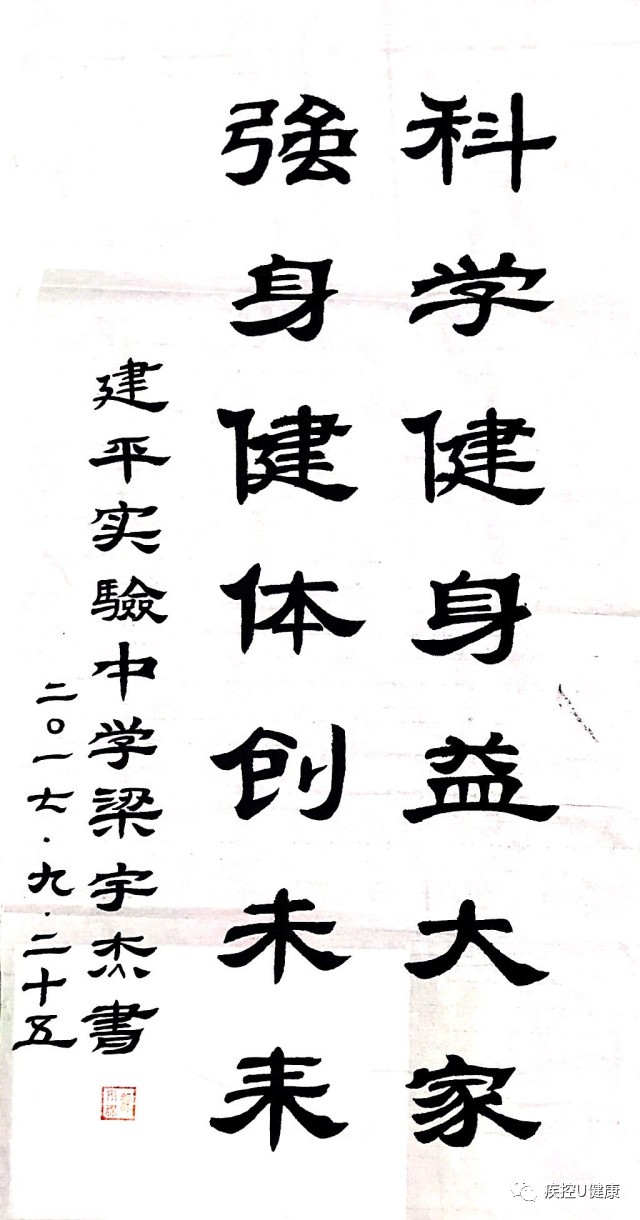 科学健身益大家
強身健体创未来
建平实驗中学梁宇杰書
二〇一七.九.二十五
疾控U健康